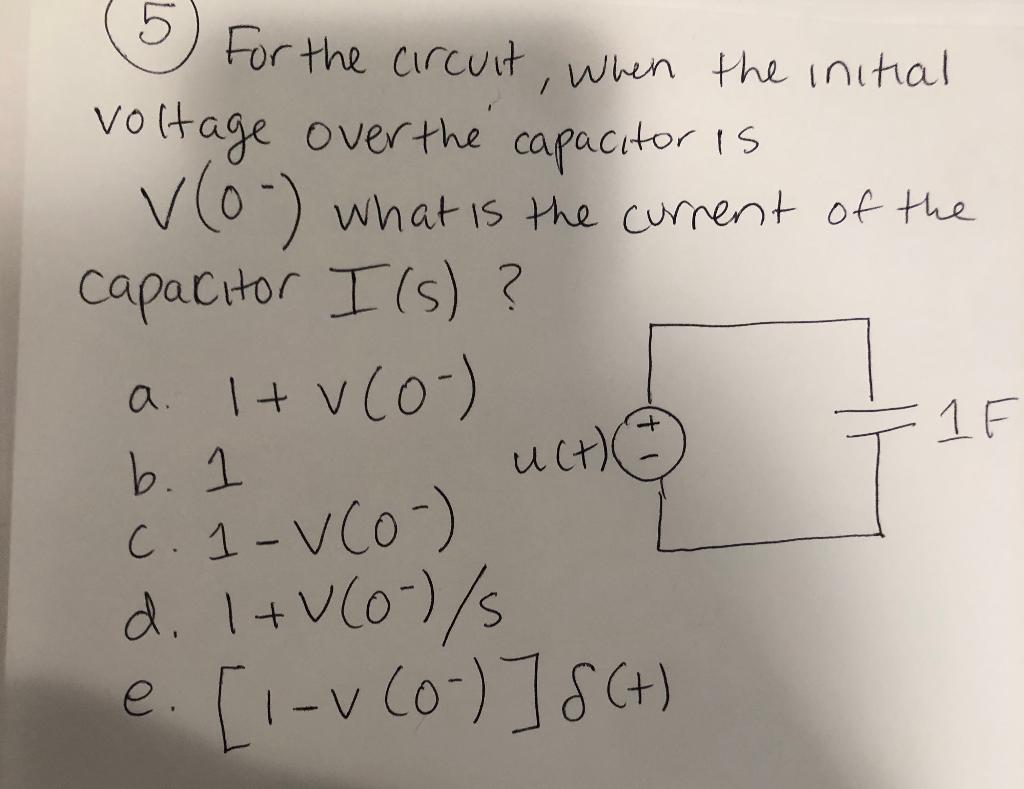 5
For the circuit, when the initial
voltage over the capacitor is
V(0⁻) what is the current of the
capacitor I(s) ?
a. 1 + v(0⁻)
b. 1
c. 1 - V(0⁻)
d. 1 + V(0⁻)/s
e. [1-v(0⁻)] δ(t)
u(t)
+
-
1 F